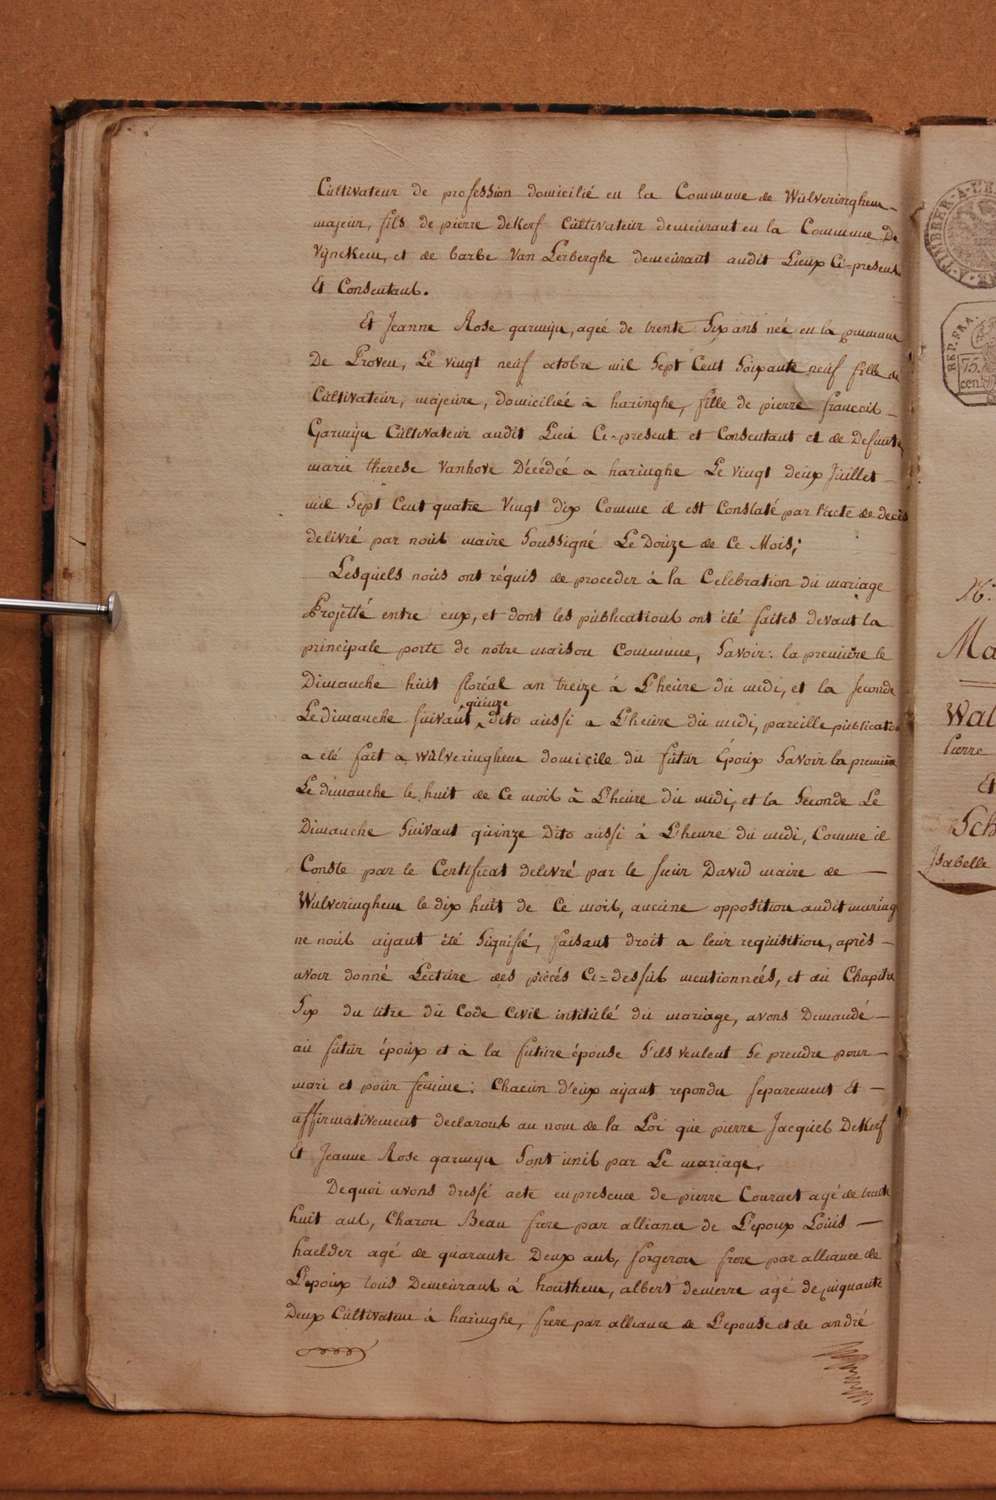 Cultivateur de profession domicilié en la Commune de Wulveringhem
majeur, fils de pierre deKerf Cultivateur demeurant en la Commune De
Vynckem, et de barbe Van Lerberghe demeurant audit Lieux Ci-present
Et Consentant.
Et Jeanne Rose garmyn, ageé de trente Six ans née en la commune
De Proven, Le vingt neuf octobre mil Sept Cent Soixante neuf fille de
Cultivateur, majeure, domiciliée à haringhe, fille de pierre francois
Garmyn Cultivateur audit Lieu Ci-present et Consentant et de defunte
marie therese Vanhove Décédéé a haringhe Le Vingt deux Juillet
mil Sept Cent quatre Vingt dix Comme il est Constaté par l'acte de decès
delivré par nous maire Soussigné Le Douze de Ce Mois;
Lesquels nous ont réquis de proceder à la Celebration du mariage
Projetté entre eux, et dont les publications ont été faites devant la
principale porte de nôtre maison Commune, Savoir: la premiere le
Dimanche huit floréal an treize à L'heure du midi, et la seconde
quinze
Le dimanche suivant dito aussi a L'heure du midi, pareille publication
a été fait a Wulveringhem domicile du futur Epoux Savoir la premiere
Le dimanche le huit de Ce mois à L'heure du midi, et la Seconde Le
Dimanche Suivant quinze dito aussi à L'heure du midi, Comme il
Conste par le Certificat delivré par le sieur David maire de
Wulveringhem le dix huit de Ce mois, aucune opposition audit mariage
ne nous ayant été Signifié, faisant droit a leur requisition, après
avoir donné Lecture des piécés Ci=dessus mentionneés, et du Chapitre
Six du titre du Code Civil intitulé du mariage, avons Demandé
au futur époux et à la future épouse S'ils veulent Se prendre pour
mari et pour femme: Chacun d'eux ayant repondu separement Et
affirmativement declarons au nom de la Loi que pierre Jacques DeKerf
Et Jeanne Rose garmyn Sont unis par Le mariage,
Dequoi avons dressé acte en presence de pierre Couraet agé de trente
huit ans, Charon Beau frere par alliance de L'epoux Louis
haelder agé de quarante Deux ans, forgeron frere par alliance de
L'epoux tous Demeurans à houthem, albert devierre agé de cinquante
Deux Cultivateur à haringhe, frere par alliance de L'epouse et de andré
TIMBRE A L'E
REP. FRA.
75
cent
N:
Ma
Wal
Pierre
Et
Sch
Isabelle